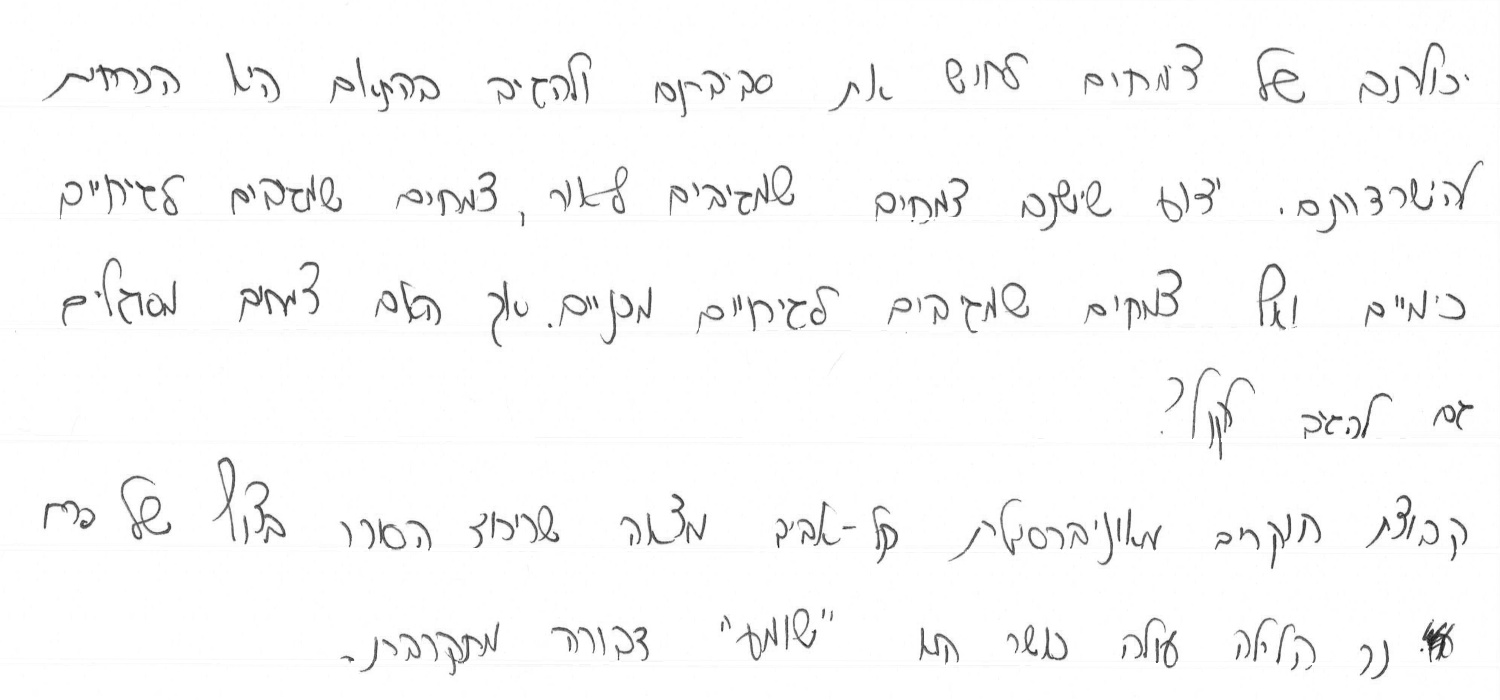 יכולתם של צמחים לחוש את סביבתם ולהגיב בהתאם היא הכרחית
להישרדותם. ידוע שישנם צמחים שמגיבים לאור, צמחים שמגיבים לגירויים
כימיים ואף צמחים שמגיבים לגירויים מכניים. אך האם צמחים מסוגלים
גם להגיב לקול?
קבוצת חוקרים מאוניברסיטת תל-אביב מצאה שריכוז הסוכר בצוף של פרח
נר הלילה עולה כאשר הוא "שומע" דבורה מתקרבת.